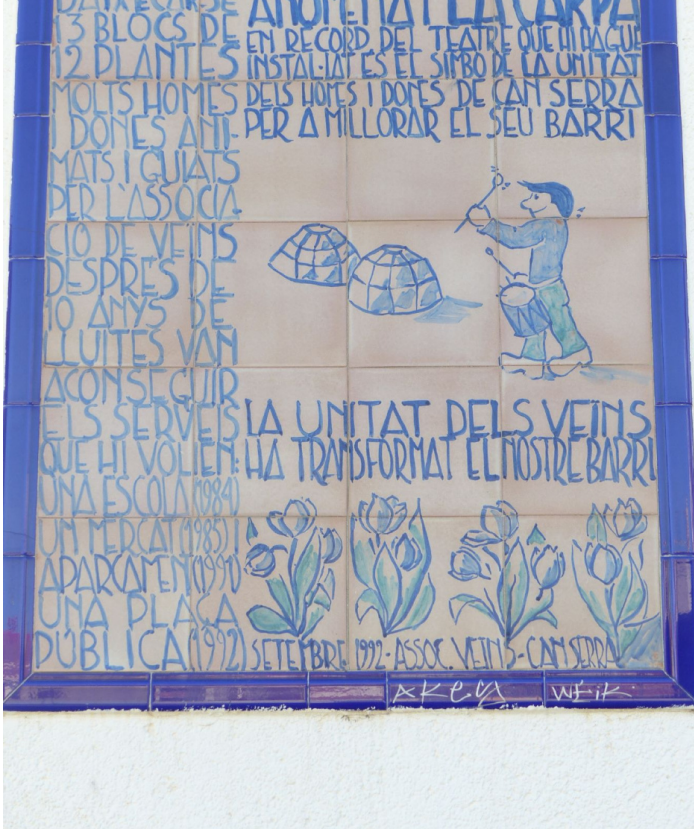 13 BLOCS DE
12 PLANTES
MOLTS HOMES
I DONES ANI-
MATS I GUIATS
PER L'ASSOCIA-
CIÓ DE VEÏNS
DESPRÉS DE
10 ANYS DE
LLUITES VAN
ACONSEGUIR
ELS SERVEIS
QUE HI VOLIEN:
UNA ESCOLA (1984)
UN MERCAT (1985)
APARCAMENT (1991)
UNA PLAÇA
PÚBLICA (1992)
ANOMENAT LA CARPA
EN RECORD DEL TEATRE QUE HI HAGUÉ
INSTAL·LAT ÉS EL SÍMBOL DE LA UNITAT
DELS HOMES I DONES DE CAN SERRA
PER A MILLORAR EL SEU BARRI
LA UNITAT DELS VEÏNS
HA TRANSFORMAT EL NOSTRE BARRI
SETEMBRE 1992 - ASSOC. VEÏNS - CAN SERRA